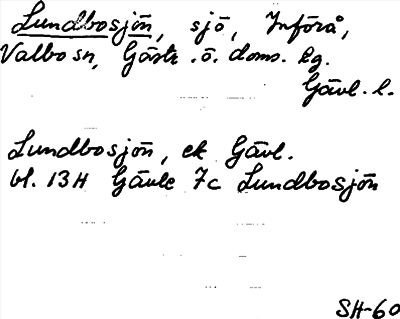 Lundbosjön, sjö, Införå,
Valbo sn, Gästr. ö. doms. hg.
Gävl. l.
Lundbosjön, ek Gävl.
bl. 13H Gävle 7c Lundbosjön
SH-60